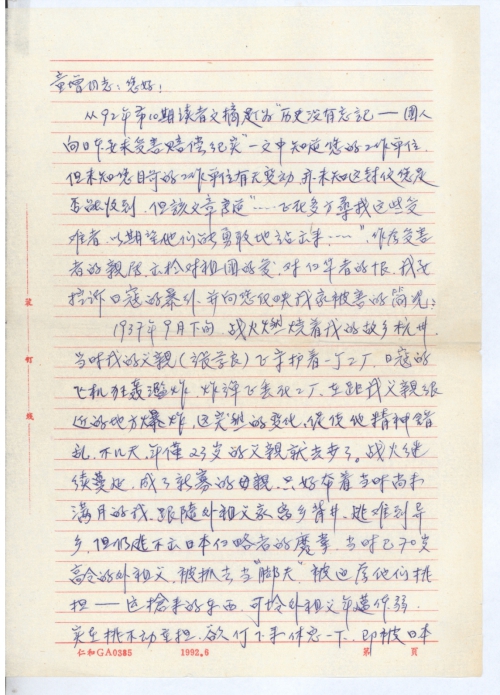 童曾同志：您好！
从92年第10期读者文摘题为“历史没有忘记——国人
向日本要求受害赔偿纪实”一文中知道您的工作单位
但未知您目前的工作单位有无变动，亦未知这封信您是
否能收到，但该文章序道“……飞在多方寻找这些受
难者，以期望他们能勇敢地站出来……”，作为受害
者的亲属，出于对祖国的爱，对仇军者的恨，我要
控诉日寇的暴行，并向您反映我家被害的简况：
1937年9月下旬，战火燃烧着我的故乡杭州，
当时我的父亲（张学良）正守护着一丁工厂，日寇的
飞机狂轰滥炸，炸弹飞丢在工厂，在距我父亲很
近的地方爆炸，这突然的变化，促使他精神错
乱，不几天，年仅23岁的父亲就去世了。战火继
续蔓延，成了新寡的母亲，只好带着当时尚未
满月的我，跟随外祖父家离乡背井，逃难到异
乡，但仍逃不出日本侵略者的魔掌，当时已70岁
高令的外祖父，被抓去当“脚夫”，被迫为他们挑
担——这抢来的东西，可怜外祖父年迈体弱，
实在挑不动重担，欲停下来休息一下，即被日本
装
订
线
仁和GA0385
1992.6
第 页